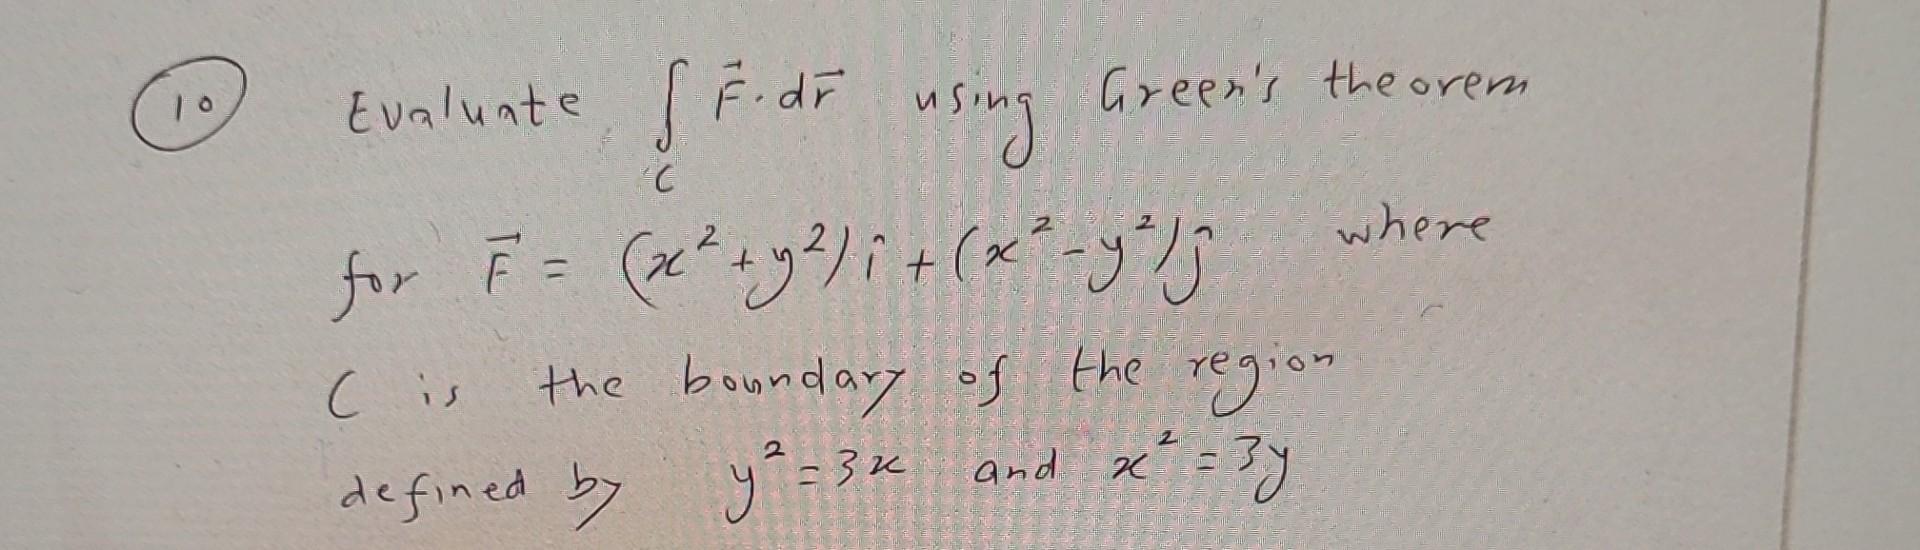 10 Evaluate ∫_C F⃗ . dr⃗ using Green's theorem
for F⃗ = (x² + y²) i + (x² - y²) j where
C is the boundary of the region
defined by y² = 3x and x² = 3y